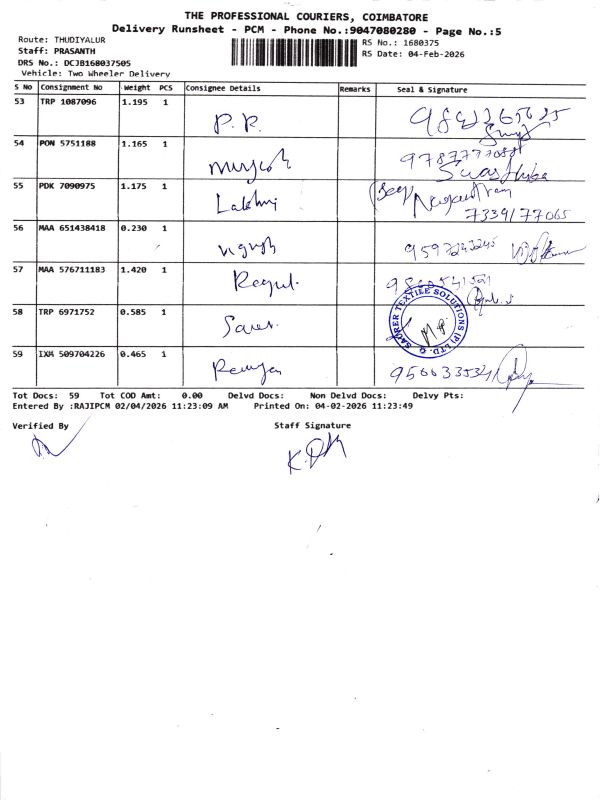 THE PROFESSIONAL COURIERS, COIMBATORE
Delivery Runsheet - PCM - Phone No.:9047080280 - Page No.:5
Route: THUDIYALUR
RS No.: 1680375
Staff: PRASANTH
RS Date: 04-Feb-2026
DRS No.: DCJB168037505
Vehicle: Two Wheeler Delivery
S No Consignment No Weight PCS Consignee Details Remarks Seal & Signature
53 TRP 1087096 1.195 1 P.R.
54 PON 5751188 1.165 1
55 PDK 7090975 1.175 1 Lakshmi
7339177065
56 MAA 651438418 0.230 1 Vignesh
57 MAA 576711183 1.420 1 Ragul.
58 TRP 6971752 0.585 1
SAURER TEXTILE SOLUTIONS (P) LTD.
59 IXM 509704226 0.465 1 9566335341
Tot Docs: 59 Tot COD Amt: 0.00 Delvd Docs: Non Delvd Docs: Delvy Pts:
Entered By :RAJIPCM 02/04/2026 11:23:09 AM Printed On: 04-02-2026 11:23:49
Verified By Staff Signature